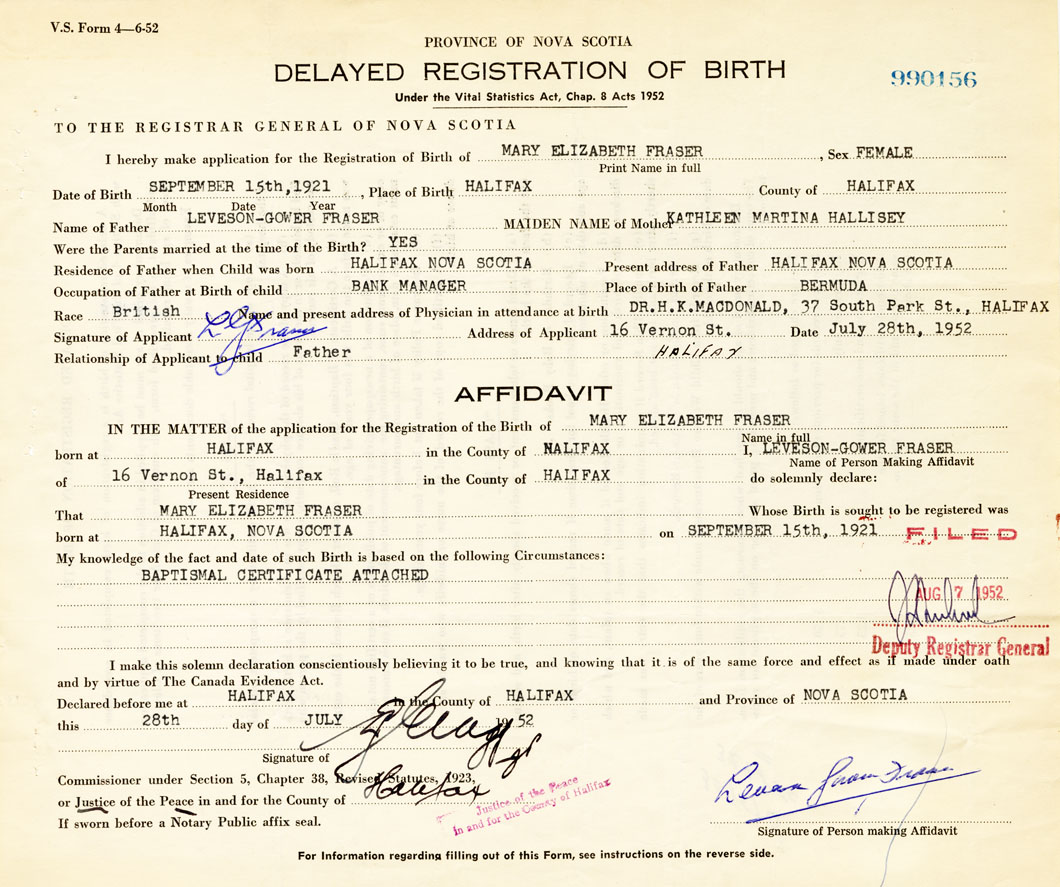 V.S. Form 4—6-52
PROVINCE OF NOVA SCOTIA
DELAYED REGISTRATION OF BIRTH
990156
Under the Vital Statistics Act, Chap. 8 Acts 1952
TO THE REGISTRAR GENERAL OF NOVA SCOTIA
I hereby make application for the Registration of Birth of MARY ELIZABETH FRASER, Sex FEMALE
Print Name in full
Date of Birth SEPTEMBER 15th, 1921, Place of Birth HALIFAX County of HALIFAX
Month Date Year
Name of Father LEVESON-GOWER FRASER MAIDEN NAME of Mother KATHLEEN MARTINA HALLISEY
Were the Parents married at the time of the Birth? YES
Residence of Father when Child was born HALIFAX NOVA SCOTIA Present address of Father HALIFAX NOVA SCOTIA
Occupation of Father at Birth of child BANK MANAGER Place of birth of Father BERMUDA
Race British Name and present address of Physician in attendance at birth DR.H.K.MACDONALD, 37 South Park St., HALIFAX
Signature of Applicant L G Fraser Address of Applicant 16 Vernon St. Date July 28th, 1952
Relationship of Applicant to child Father HALIFAX
AFFIDAVIT
IN THE MATTER of the application for the Registration of the Birth of MARY ELIZABETH FRASER
Name in full
born at HALIFAX in the County of HALIFAX I, LEVESON-GOWER FRASER
Name of Person Making Affidavit
of 16 Vernon St., Halifax in the County of HALIFAX do solemnly declare:
Present Residence
That MARY ELIZABETH FRASER Whose Birth is sought to be registered was
born at HALIFAX, NOVA SCOTIA on SEPTEMBER 15th, 1921 FILED
My knowledge of the fact and date of such Birth is based on the following Circumstances:
BAPTISMAL CERTIFICATE ATTACHED
AUG 7 1952
Deputy Registrar General
I make this solemn declaration conscientiously believing it to be true, and knowing that it is of the same force and effect as if made under oath
and by virtue of The Canada Evidence Act.
Declared before me at HALIFAX in the County of HALIFAX and Province of NOVA SCOTIA
this 28th day of JULY 1952
Signature of
Commissioner under Section 5, Chapter 38, Revised Statutes, 1923,
or Justice of the Peace in and for the County of Halifax
Justice of the Peace
in and for the County of Halifax
If sworn before a Notary Public affix seal.
Leveson Gower Fraser
Signature of Person making Affidavit
For Information regarding filling out of this Form, see instructions on the reverse side.